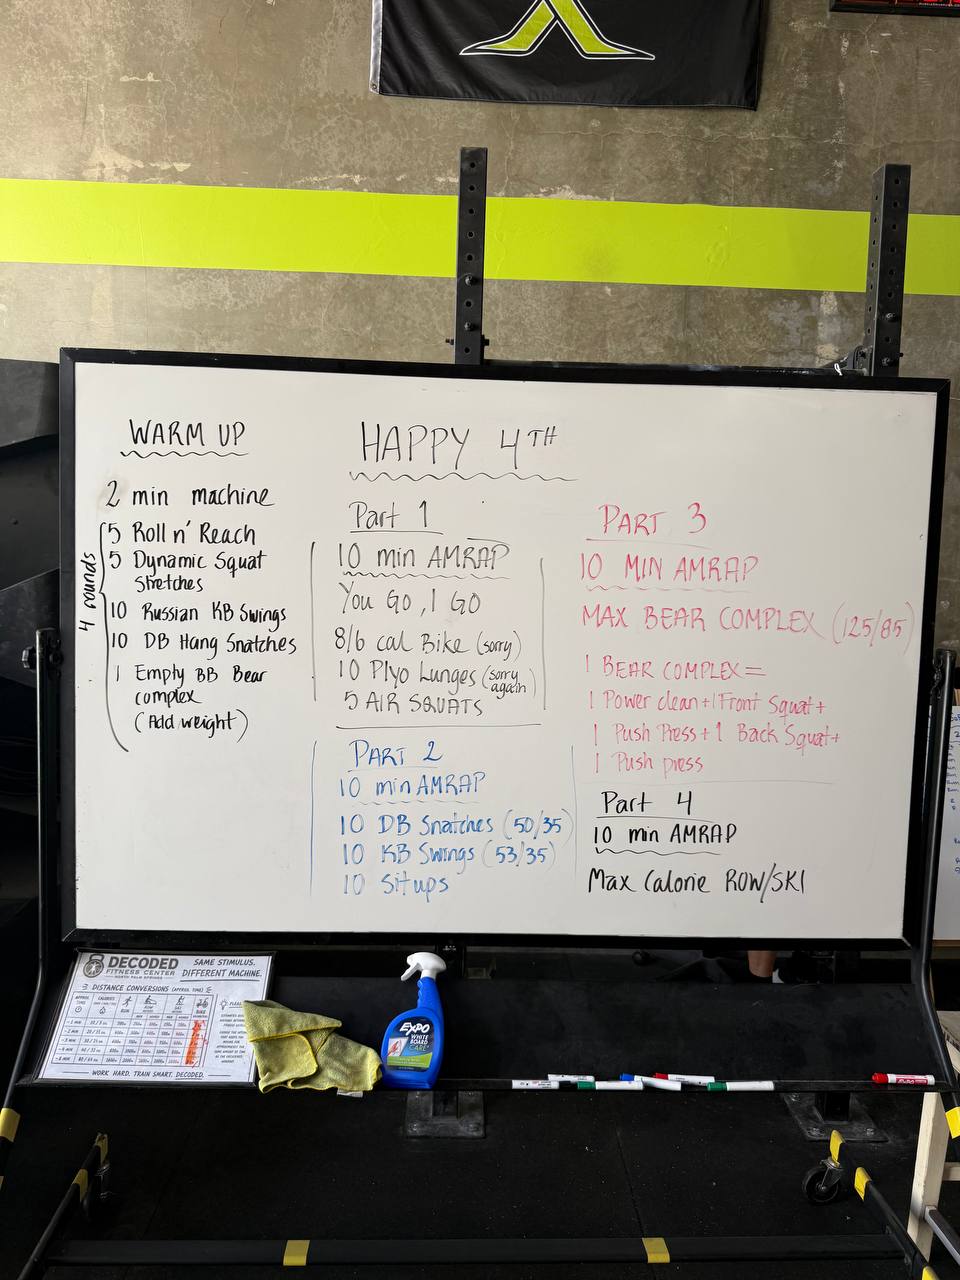 WARM UP
2 min machine
4 rounds
5 Roll n' Reach
5 Dynamic Squat
Stretches
10 Russian KB Swings
10 DB Hang Snatches
1 Empty BB Bear
complex
(Add weight)
HAPPY 4TH
Part 1
10 min AMRAP
You GO, I GO
8/6 cal Bike (sorry)
10 Plyo Lunges (sorry
again)
5 AIR SQUATS
PART 2
10 min AMRAP
10 DB Snatches (50/35)
10 KB Swings (53/35)
10 Situps
PART 3
10 MIN AMRAP
MAX BEAR COMPLEX (125/85)
1 BEAR COMPLEX =
1 Power clean + 1 Front Squat +
1 Push Press + 1 Back Squat +
1 Push press
Part 4
10 min AMRAP
Max Calorie ROW/SKI
DECODED
FITNESS CENTER
SAME STIMULUS.
DIFFERENT MACHINE.
DISTANCE CONVERSIONS (APPROX. TIME)
WORK HARD. TRAIN SMART. DECODED.
EXPO
WHITE
BOARD
CARE